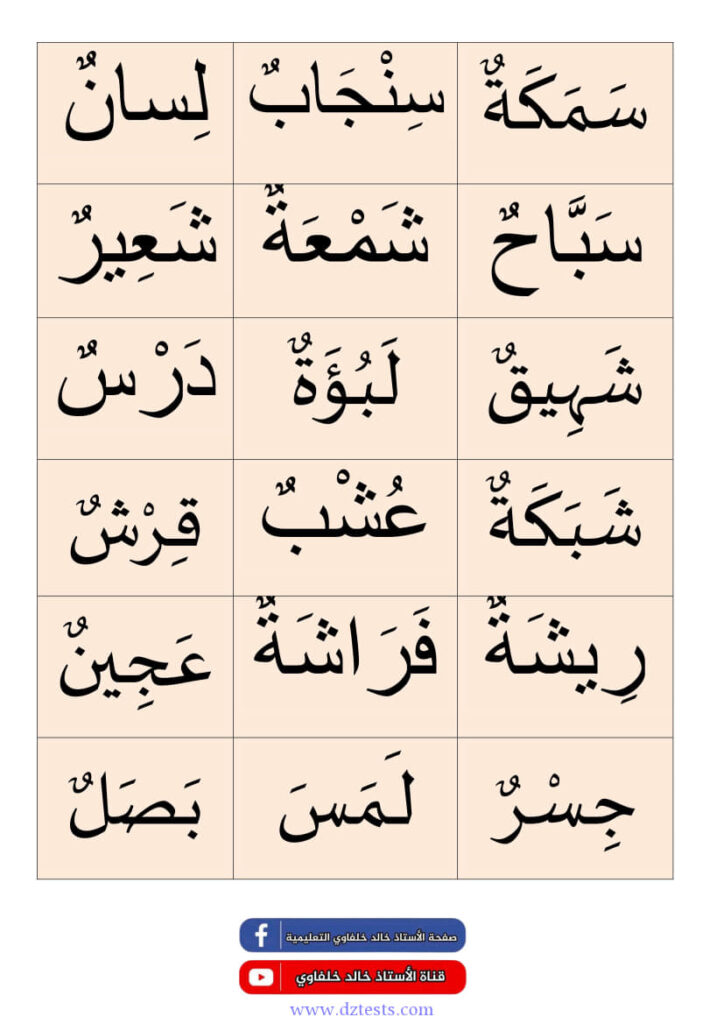 سَمَكَةٌ سِنْجَابٌ لِسانٌ
سَبَّاحٌ شَمْعَةٌ شَعِيرٌ
شَهِيقٌ لَبُؤَةٌ دَرْسٌ
شَبَكَةٌ عُشْبٌ قِرْشٌ
رِيشَةٌ فَرَاشَةٌ عَجِينٌ
جِسْرٌ لَمَسَ بَصَلٌ
صفحة الأستاذ خالد خلفاوي التعليمية
قناة الأستاذ خالد خلفاوي
www.dztests.com